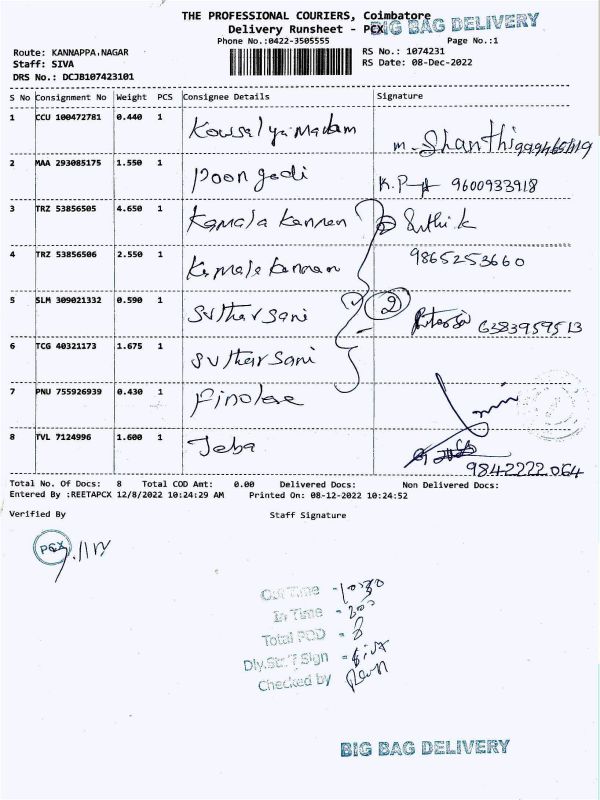 THE PROFESSIONAL COURIERS, Coimbatore
Delivery Runsheet - PCX
BIG BAG DELIVERY
Phone No.:0422-3505555
Page No.:1
Route: KANNAPPA.NAGAR
RS No.: 1074231
Staff: SIVA
RS Date: 08-Dec-2022
DRS No.: DCJB107423101
S No Consignment No Weight PCS Consignee Details Signature
1 CCU 100472781 0.440 1 Kowsalya madam m. Shanthi
2 MAA 293085175 1.550 1 Poongodi K.P 9600933918
3 TRZ 53856505 4.650 1 Kamala Kannan
4 TRZ 53856506 2.550 1 Kamala Kannan 9865253660
5 SLM 309021332 0.590 1 Sutharsani 2 6383959513
6 TCG 40321173 1.675 1 Sutharsani
7 PNU 755926939 0.430 1 Finolexe
8 TVL 7124996 1.600 1 Jeba 9842222064
Total No. Of Docs: 8 Total COD Amt: 0.00 Delivered Docs: Non Delivered Docs:
Entered By :REETAPCX 12/8/2022 10:24:29 AM Printed On: 08-12-2022 10:24:52
Verified By Staff Signature
PCX
Out Time - 1030
In Time - 200
Total POD - 8
Dly.Str.? Sign - Siva
Checked by
BIG BAG DELIVERY